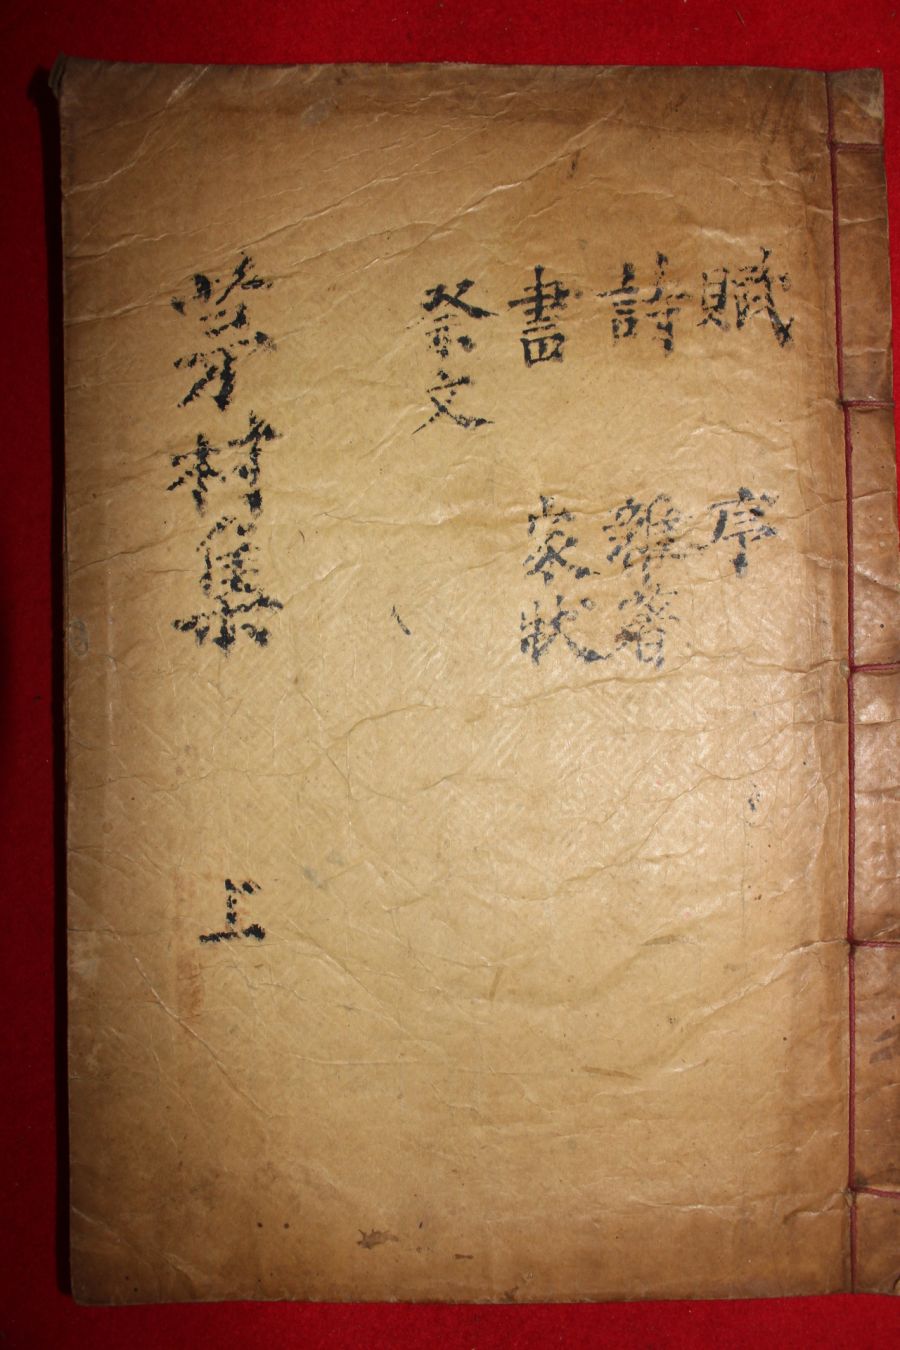 賦 序
詩 雜著
書 家狀
祭文
茅村集 上